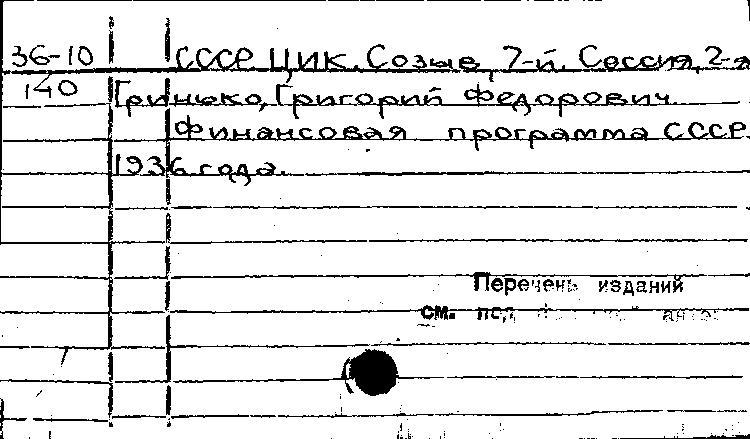 36-10 СССР ЦИК. Созыв, 7-й. Сессия, 2-я
140 Гринько, Григорий Федорович
Финансовая программа СССР
1936 года.
Перечень изданий
см. под